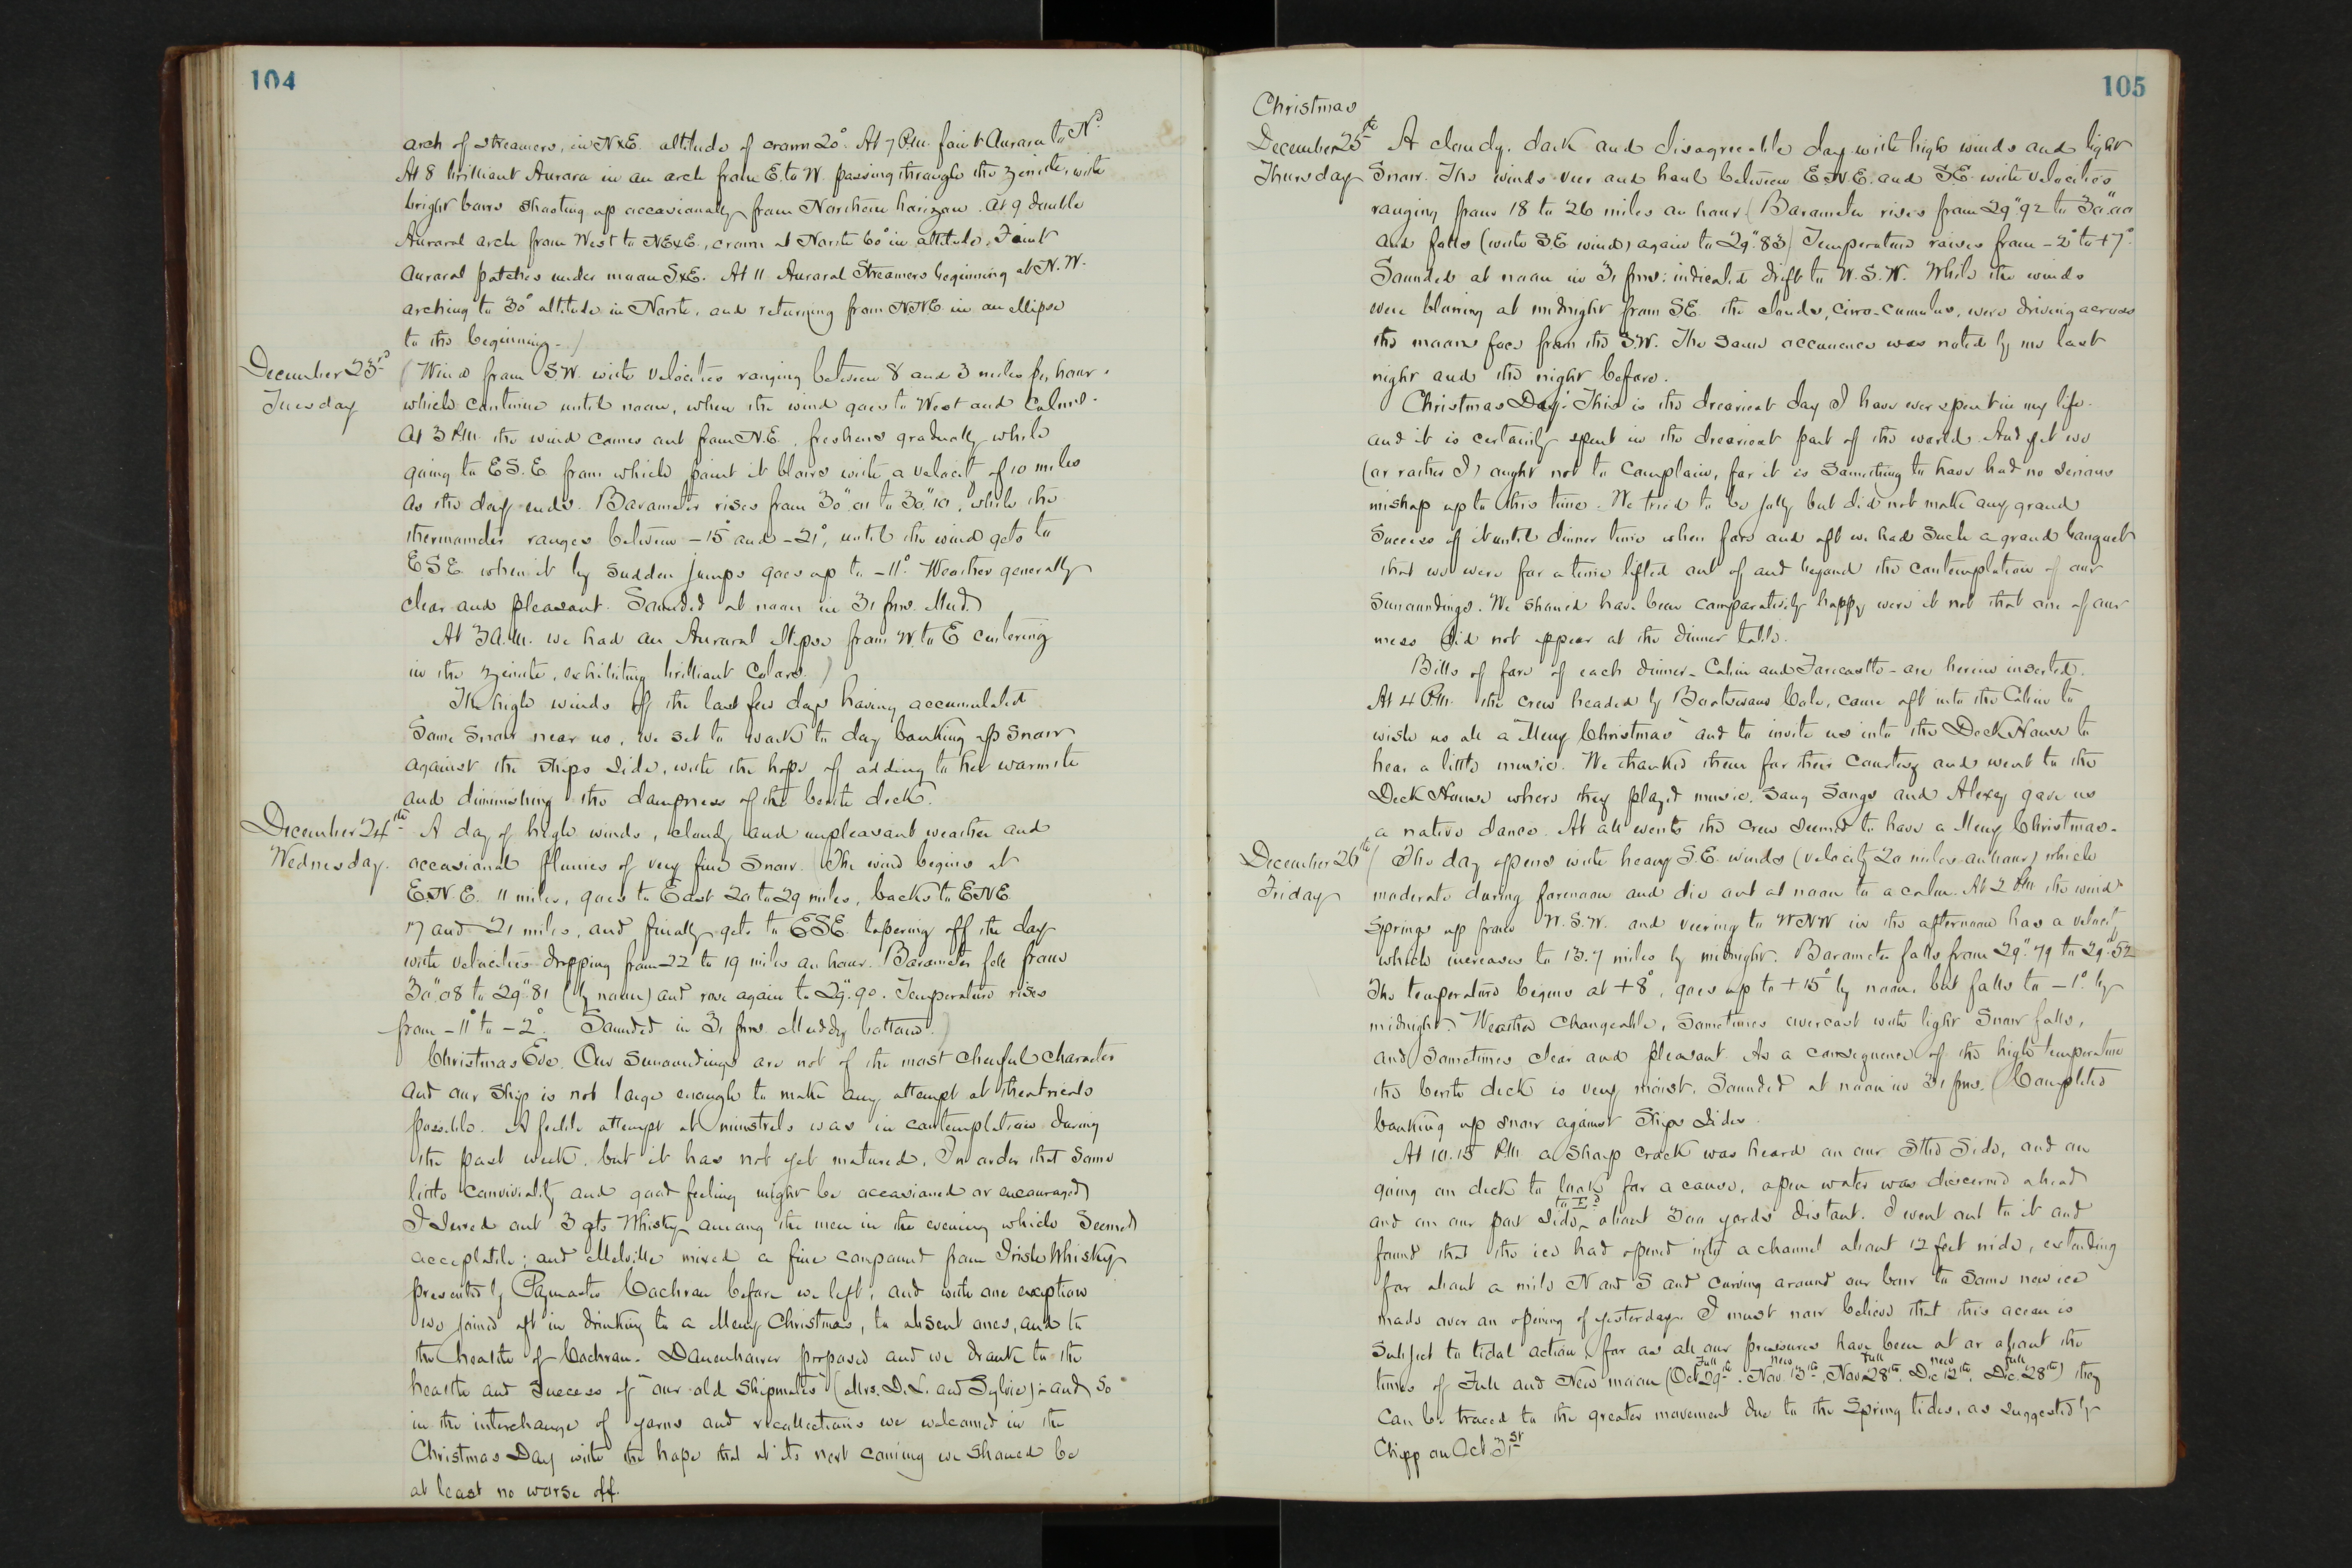 104
arch of streamers, in NxE. altitude of crown 20°. At 7 P.M. faint Aurora to Nd.
At 8 brilliant Aurora in an arch from E. to W. passing through the zenith, with
bright bars shooting up occasionally from Northern horizon. At 9 double
Auroral arch from West to NExE., crown at North 60° in altitude. Faint
auroral patches under moon SxE. At 11 Auroral Streamers beginning at N.W.
arching to 30° altitude in North, and returning from NNE in an ellipse
to the beginning.)
December 23rd
Tuesday
(Wind from S.W. with velocities ranging between 8 and 3 miles per hour.
which continue until noon, when the wind goes to West and Calms.
At 3 P.M. the wind comes out from N.E., freshens gradually while
going to E.S.E from which point it blows with a velocity of 10 miles
as the day ends. Barometer rises from 30".01 to 30".10, while the
thermometer ranges between -15° and -21°, until the wind gets to
ESE when it by sudden jumps goes up to -11°. Weather generally
clear and pleasant. Sounded at noon in 31 fms. Mud.)
At 3 A.M. we had an Auroral ellipse from W. to E centering
in the zenith, exhibiting brilliant Colors.)
The high winds of the last few days having accumulated
Some Snow near us, we set to work to day banking up Snow
against the ships side, with the hope of adding to her warmth
and diminishing the dampness of the berth deck.
December 24th
Wednesday.
A day of high winds, cloudy and unpleasant weather and
occasional flurries of very fine Snow. (The wind begins at
E.N.E. 11 miles, goes to East 20 to 29 miles, backs to ENE
17 and 21 miles, and finally gets to ESE. tapering off the day
with velocities dropping from 22 to 19 miles an hour. Barometer fell from
30".08 to 29".81 (by noon) and rose again to 29".90. Temperature rises
from -11° to -2°. Sounded in 31 fms. Muddy bottom.)
Christmas Eve. Our Surroundings are not of the most cheerful character
and our Ship is not large enough to make any attempt at theatricals
possible. A feeble attempt at minstrels was in contemplation during
the past week, but it has not yet matured. In order that Some
little conviviality and good feeling might be occasioned or encouraged
I Served out 3 qts Whisky among the men in the evening which Seemed
acceptable; and Melville mixed a fine compound from Irish Whisky
presented by Paymaster Cochran before we left, and with one exception
we joined aft in drinking to a Merry Christmas, to absent ones, and to
the health of Cochran. Danenhower proposed and we drank to the
health and Success of "our old Shipmates" (Mrs. D.L. and Sylvie); and So
in the interchange of yarns and recollections we welcomed in the
Christmas Day with the hope that at its next coming we Should be
at least no worse off.
105
Christmas
December 25th
Thursday
A cloudy, dark and disagreeable day with high winds and light
Snow. The winds veer and haul between E.N.E. and S.E. with velocities
ranging from 18 to 26 miles an hour (Barometer rises from 29".92 to 30".00
and falls (with S.E. wind) again to 29".83) Temperature raises from -2° to +7°.
Sounded at noon in 31 fms: indicated drift to W.S.W. While the winds
were blowing at midnight from SE. the clouds, cirro-cumulus, were driving across
the moons face from the S.W. The Same occurrence was noted by me last
night and the night before.
Christmas Day! This is the dreariest day I have ever spent in my life.
and it is certainly spent in the dreariest part of the world. And yet we
(or rather I) ought not to complain, for it is Something to have had no serious
mishap up to this time. We tried to be jolly but did not make any grand
Success of it until dinner time when fore and aft we had Such a grand banquet
that we were for a time lifted out of and beyond the contemplation of our
Surroundings. We should have been comparatively happy were it not that one of our
mess did not appear at the dinner table.
Bills of fare of each dinner - Cabin and Forecastle - are herein inserted.
At 4 P.M. the crew headed by Boatswain Cole, came aft into the Cabin to
wish us all a "Merry Christmas" and to invite us into the Deck House to
hear a little music. We thanked them for their Courtesy and went to the
Deck House where they played music, Sang Songs and Alexey gave us
a native dance. At all events the crew seemed to have a Merry Christmas.
December 26th
Friday
(The day opens with heavy S.E. winds (velocity 20 miles an hour) which
moderate during forenoon and die out at noon to a calm. At 2 P.M. the wind
Springs up from W.S.W. and veering to WNW in the afternoon has a velocity
which increases to 13.7 miles by midnight. Barometer falls from 29".79 to 29".52
The temperature begins at +8°, goes up to +15° by noon, but falls to -1° by
midnight.) Weather changeable, Sometimes overcast with light Snow falls,
and Sometimes clear and pleasant. As a consequence of the high temperature
the berth deck is very moist. Sounded at noon in 31 fms. (Completed
banking up snow against Ships Sides.
At 10.15 P.M. a Sharp crack was heard on our Stbd Side, and on
going on deck to look for a cause, open water was discerned ahead
and on our port side to Ed about 300 yards distant. I went out to it and
found that the ice had opened into a channel about 12 feet wide, extending
for about a mile N and S and curving around our bow to Some new ice
made over an opening of yesterday. I must now believe that this ocean is
Subject to tidal action, for as all our pressures have been at or about the
times of Full and New moon (Oct 29th Full. Nov. 13th New, Nov 28th Full. Dec 12th New, Dec. 28th Full) they
can be traced to the greater movement due to the Spring tides, as suggested by
Chipp on Oct 31st